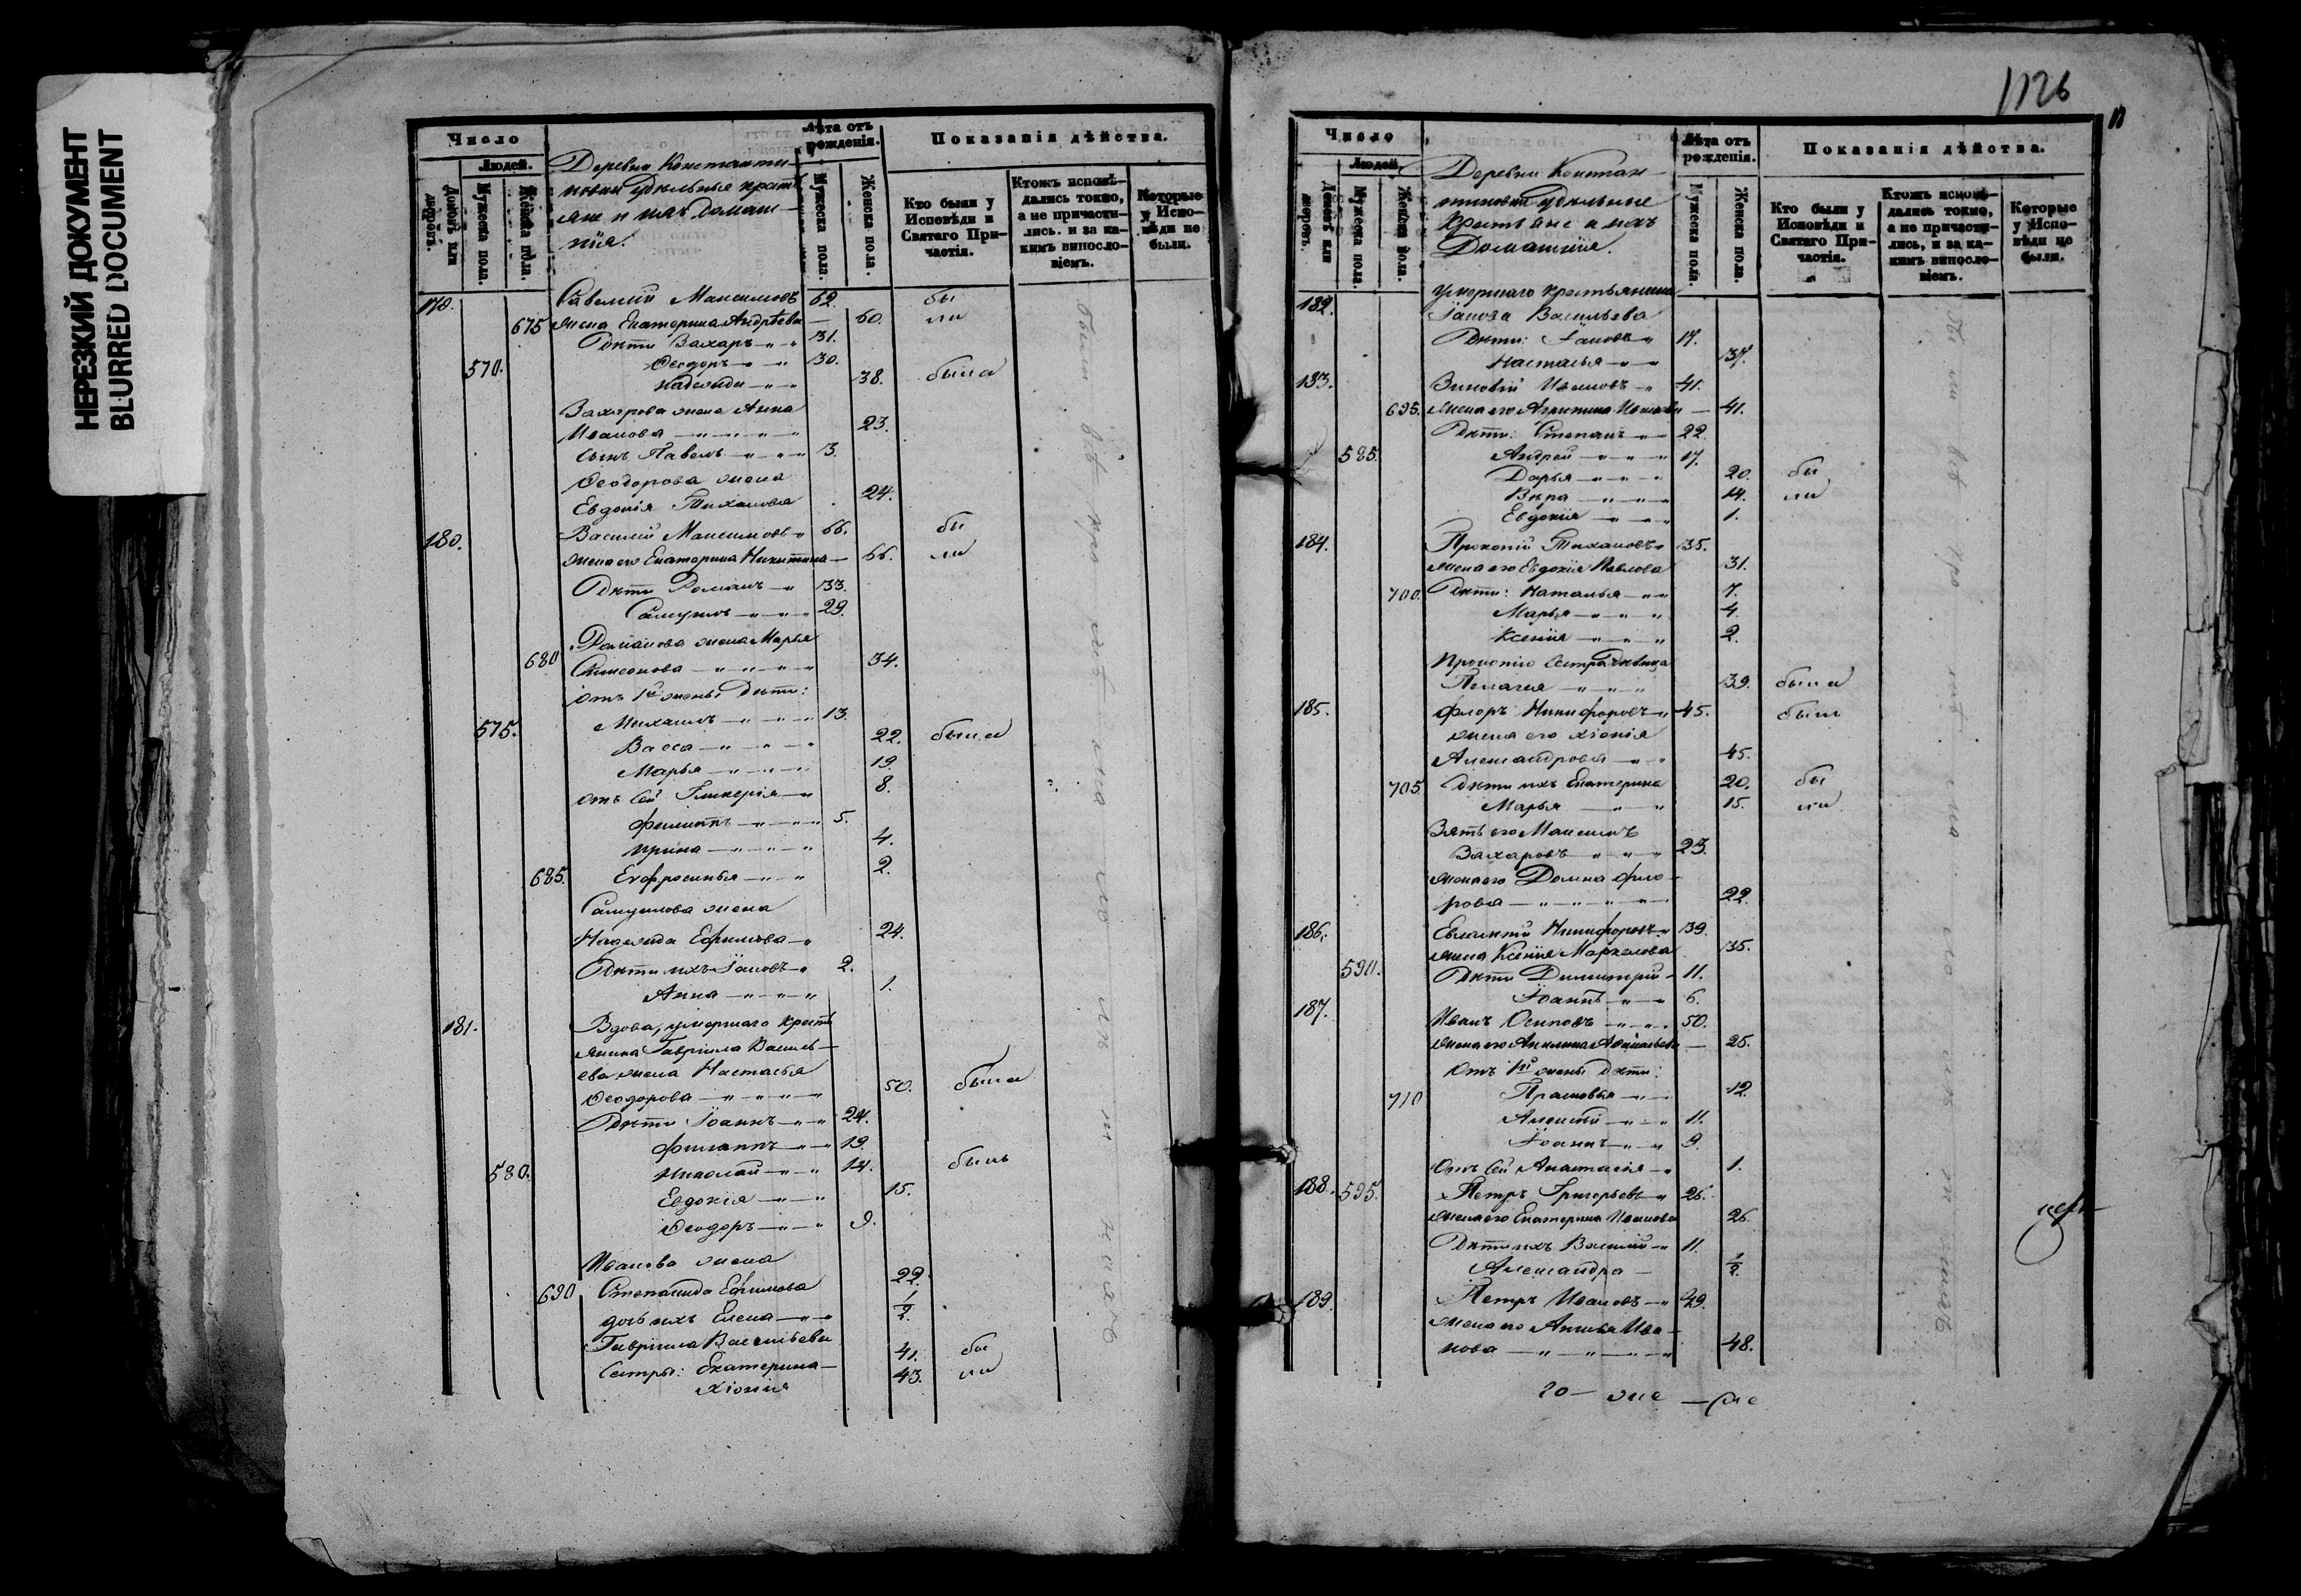 НЕРЕЗКИЙ ДОКУМЕНТ
BLURRED DOCUMENT
Число
Людей.
Домовъ или дворовъ.
Мужеска пола.
Женска пола.
Деревни Константи-
новки удѣльные крестъ-
яне и ихъ домаш-
нія.
Лѣта отъ рожденія.
Мужеска пола.
Женска пола.
Показанія дѣйства.
Кто были у Исповѣди и Святаго При-частія.
Ктожъ исповѣ-дались токмо, а не причасти-лись. и за ка-кимъ виносло-віемъ.
Которые у Испо-вѣди не были.
Савелій Максимовъ 62. бы
675 жена Екатерина Андрѣева 60. ли
Дѣти Захаръ 31.
570. Ѳеодоръ 30.
Надежда 38. была
Захарова жена Анна
Иванова 23.
сынъ Павелъ 3.
Ѳеодорова жена
Евдокія Тиханова 24.
180. Василій Максимовъ 66. бы
жена его Екатерина Никитина 66. ли
Дѣти Романъ 33.
Самуилъ 29.
Романова жена Марья
680 Симеонова 34.
отъ 1й жены Дѣти:
575. Михаилъ 13.
Васса 22. была
Марья 19.
отъ сей Гликерія 8.
Филиппъ 5.
Ирина 4.
685. Евфросинья 2.
Самуилова жена
Надежда Ефимова 24.
Дѣти ихъ Іаковъ 2.
Анна 1.
181. Вдова, умершаго кресть
янина Гавріила Василь-
ева жена Настасья
Ѳеодорова 50. была
Дѣти Іоаннъ 24.
Филиппъ 19.
580. Николай 14. былъ
Евдокія 15.
Ѳеодоръ 9.
Иванова жена
690 Степанида Ефимова 22.
дочь ихъ Елена 1/2.
Гавріила Васильева
Сестры: Екатерина 41. бы
Хіонія 43. ли
1126
Число
Людей
Домовъ или дворовъ.
Мужеска пола.
Женска пола.
Деревни Констан-
тиновки удѣльные
Крестьяне и ихъ
Домашнія.
Лѣта отъ рожденія.
Мужеска пола.
Женска пола.
Показанія дѣйства.
Кто были у Исповѣди и Святаго При-частія.
Ктожъ исповѣ-дались токмо, а не причасти-лись, и за ка-кимъ виносло-віемъ.
Которые у Испо-вѣди не были.
182. Умершаго крестьянина
Іакова Васильева
Дѣти: Іаковъ 17.
Настасья 37.
183. Зиновій Ивановъ 41.
695. жена его Агрипина Иванова 41.
Дѣти: Степанъ 22.
585. Андрей 17.
Дарья 20. бы
Вѣра 14. ли
Евдокія 1.
184. Прокопій Тихановъ 35.
жена его Евдокія Павлова 31.
700. Дѣти: Наталья 7.
Марья 4
Ксенія 2.
Прокопія сестра дѣвица
Пелагея 39. была
185. Флоръ Никифоровъ 45. былъ
жена его Хіонія
Александрова 45.
705. Дѣти ихъ Екатерина 20. бы
Марья 15. ли
Зять его Максимъ
Захаровъ 23.
жена его Домна Фло-
рова 22
186. Евлампій Никифоровъ 39.
жена Ксенія Маркелова 35.
590. Дѣти Димитрій 11.
Іоаннъ 6.
187. Иванъ Осиповъ 50.
жена его Акилина 25.
Отъ 1й жены дѣти:
710 Прасковья 12.
Алексѣй 11.
Іоаннъ 9.
Отъ сей Анастасія 1.
188. 595. Петръ Григорьевъ 26.
жена его Екатерина Иванова 26.
Дѣти ихъ Василій 11.
Александра 1/2.
189. Петръ Ивановъ 49.
жена его Ива-
нова 48.